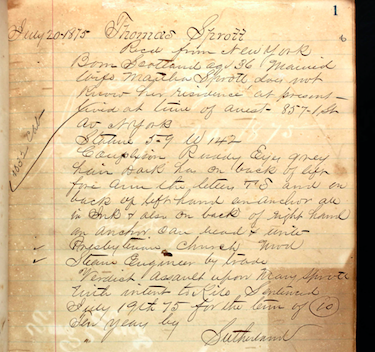 1
July 20-1875 Thomas Sprott
Recd from New York
Born Scotland Age 36 Married
Wife Martha Sprott does not
Know her residence at present
lived at time of arrest - 857-1st
av N York
Stature 5-9 W 142
Complxion Ruddy Eyes grey
hair Dark has on back of left
fore arm the letters T S and on
back of left hand an anchor all
in Ink & also on back of right hand
an anchor Can read & write
Presbyterian Church
Steam Engineer by trade
Verdict, assault upon Mary Sprott
with intent to Kill Sentenced
July 19th 75 for the term of (10)
Ten Years by
Sutherland